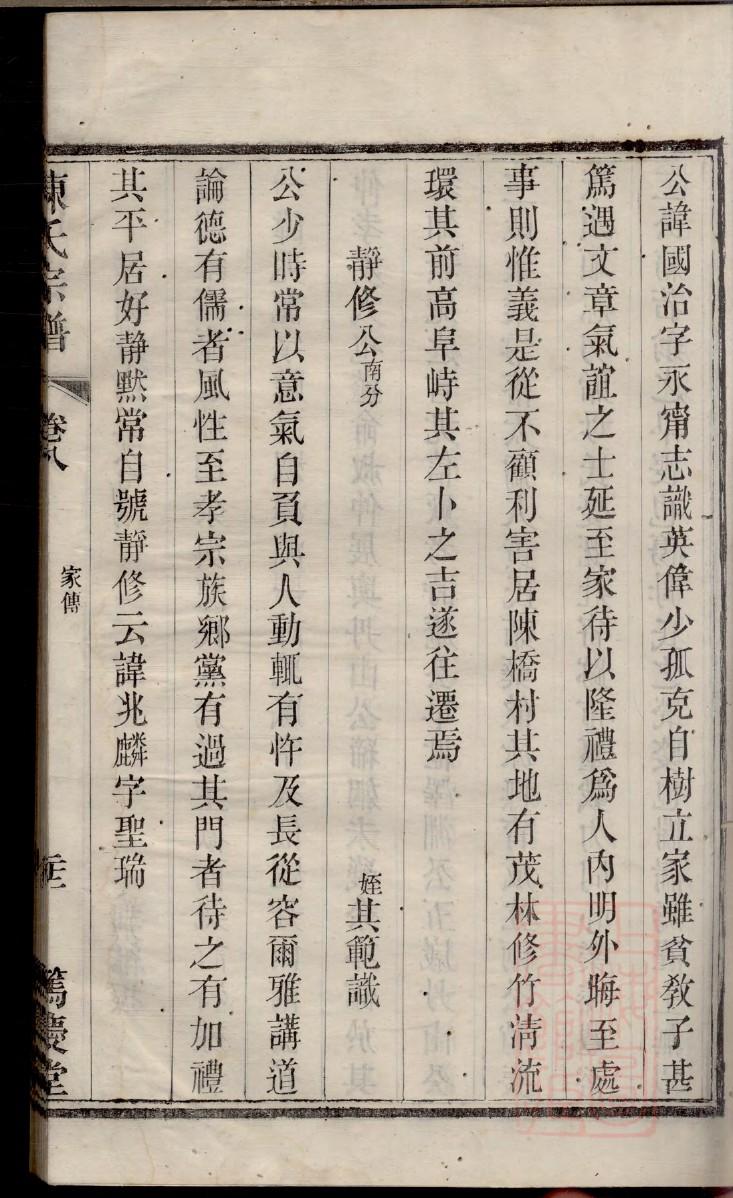 公諱國治字永甯志識英偉少孤克自樹立家雖貧教子甚
篤遇文章氣誼之士延至家待以隆禮爲人內明外晦至處
事則惟義是從不顧利害居陳橋村其地有茂林修竹清流
環其前高阜峙其左卜之吉遂往遷焉
靜修公南分 姪其範識
公少時常以意氣自負與人動輒有忤及長從容爾雅講道
論德有儒者風性至孝宗族鄉黨有過其門者待之有加禮
其平居好靜默常自號靜修云諱兆麟字聖瑞
陳氏宗譜 卷八 家傳 篤慶堂